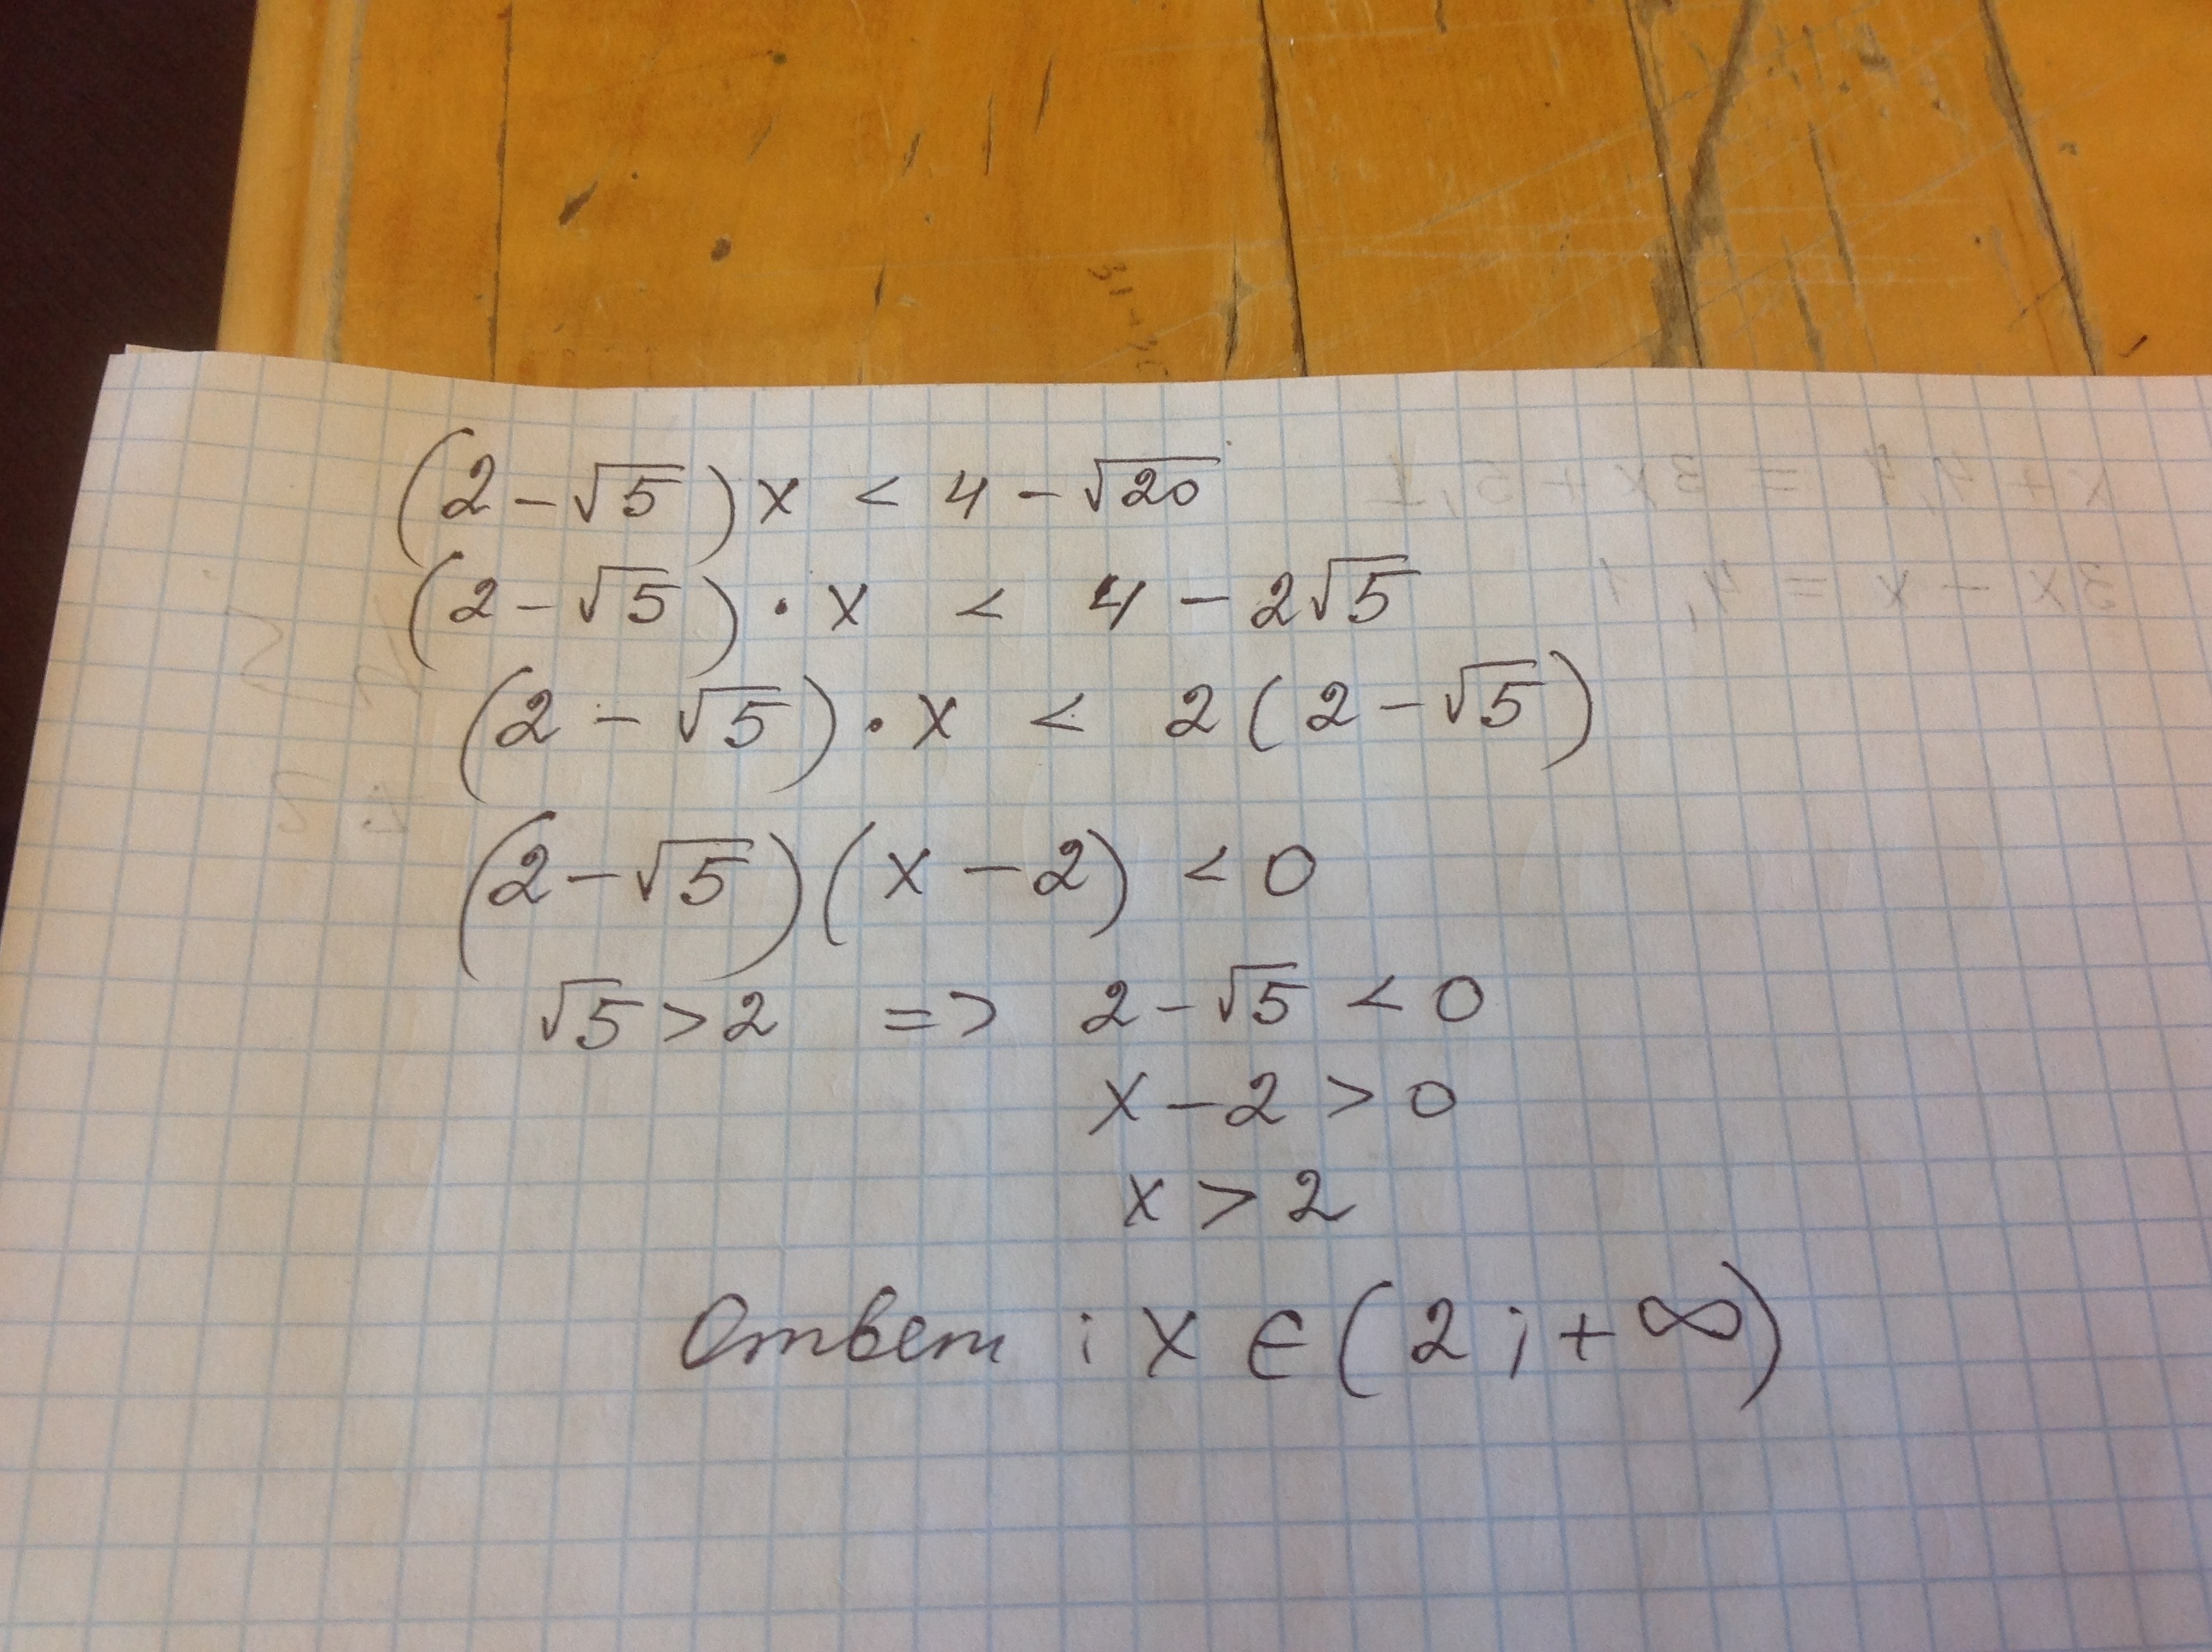 (2-√5)x < 4-√20
(2-√5)·x < 4-2√5
(2-√5)·x < 2(2-√5)
(2-√5)(x-2) < 0
√5>2 => 2-√5 < 0
x-2 > 0
x > 2
Ответ: x ∈ (2;+∞)